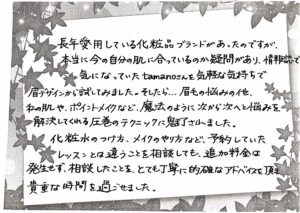 長年愛用している化粧品ブランドがあったのですが、
本当に今の自分の肌に合っているのか疑問があり、情報誌で
気になっていたtamanoさんを気軽な気持ちで
眉デザインから試してみました。そしたら…眉毛の悩みの他、
私の肌や、ポイントメイクなど、魔法のように次から次へと悩みを
解決してくれる圧巻のテクニックに魅了されました。
化粧水のつけ方、メイクのやり方など、予約していた
レッスンとは違うことを相談しても、追加料金は
発生せず、相談したことを、とても丁寧に的確なアドバイスを頂き
貴重な時間を過ごせました。